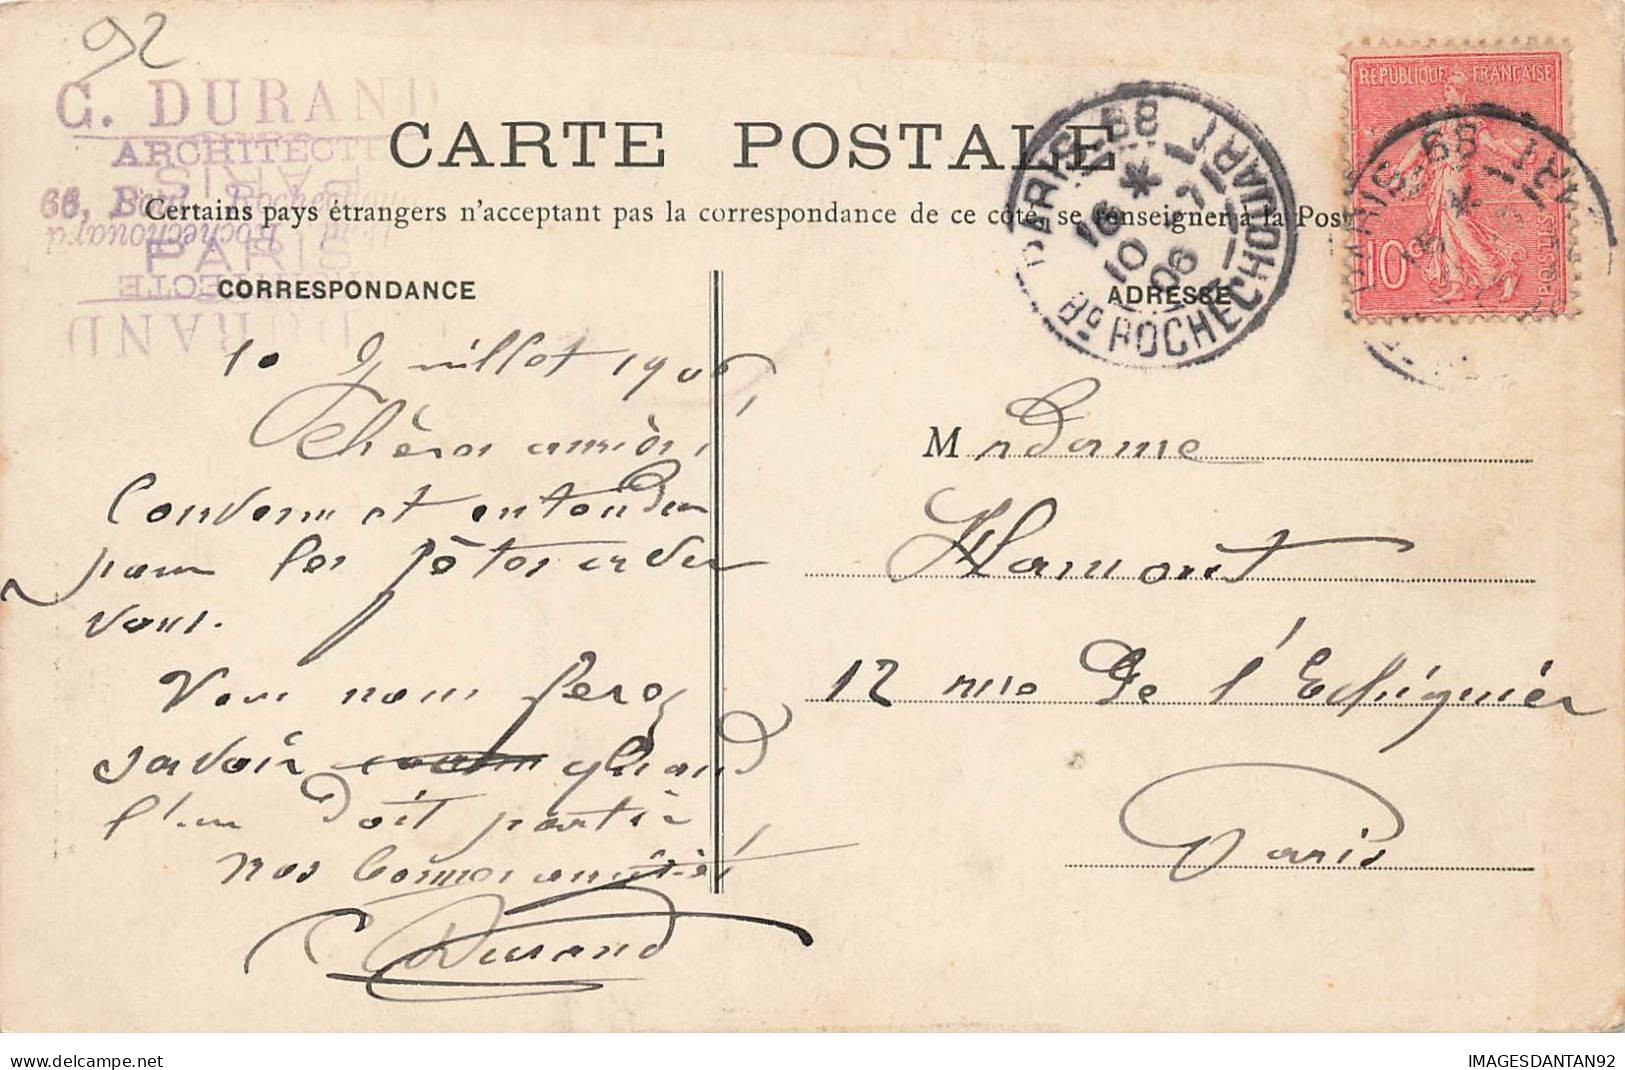 92
C. DURAND
ARCHITECTE
66, Bould Rochechouart
PARIS
CARTE POSTALE
Certains pays étrangers n'acceptant pas la correspondance de ce côté, se renseigner à la Poste
CORRESPONDANCE
ADRESSE
PARIS-68
16 * 10 7 06
Bd ROCHECHOUART
REPUBLIQUE FRANÇAISE
10c
POSTES
10 Juillet 1906
Chères amies,
Convenu et entendu
pour les fêtes chez
vous.
Vous nous ferez
savoir quand
l'on doit partir
Nos bonnes amitiés
C Durand
Madame
Hamont
12 rue de l'Echiquier
Paris
delcampe.net
IMAGESDANTAN92